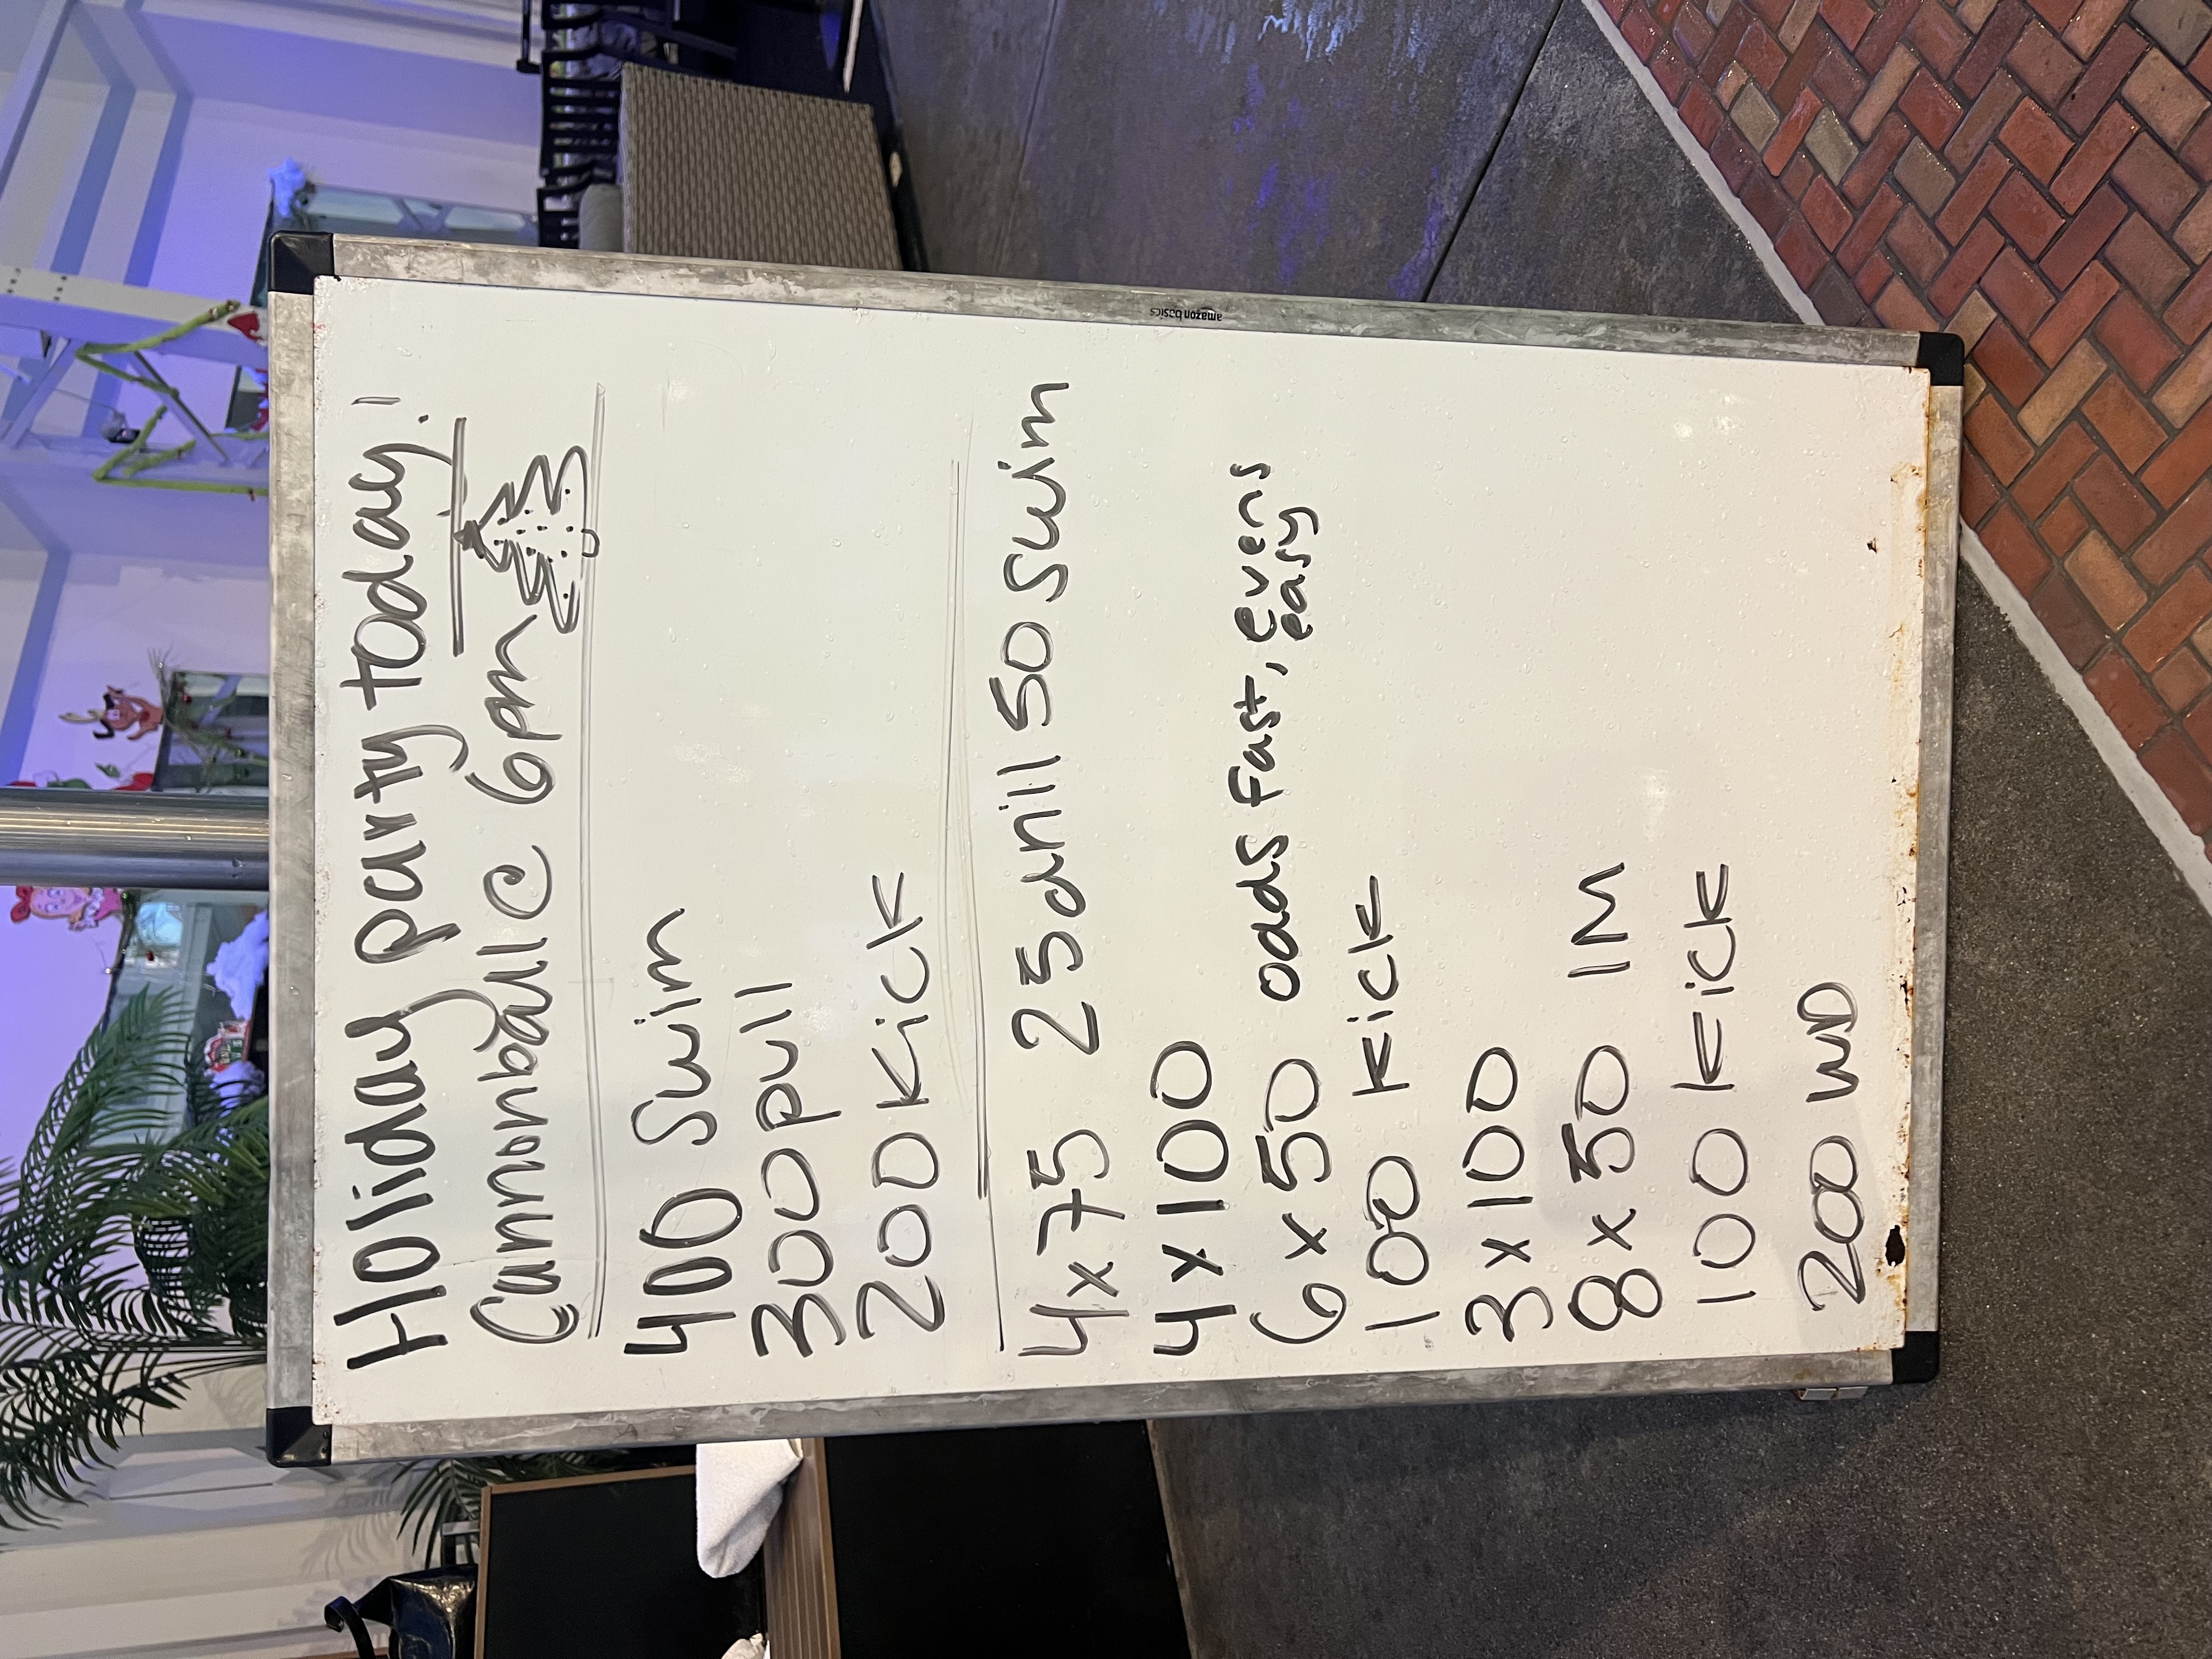 Holiday party today!
Cannonball @ 6pm
400 Swim
300 pull
200 Kick
4x75 25 drill 50 Swim
4x100
6x50 odds fast, evens
easy
100 Kick
3x100
8x50 IM
100 Kick
200 WD
amazon basics